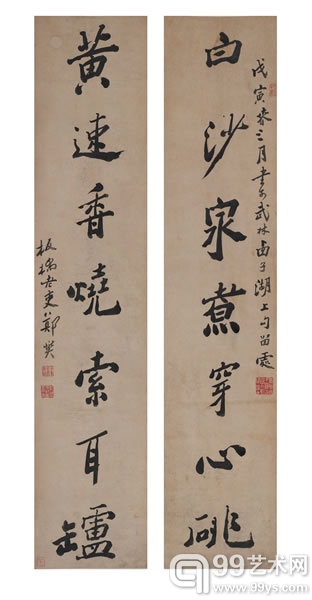 戊寅春三月書於武林西子湖上勾留處
白沙泉煮穿心
黄速香燒索耳罏
板橋老吏鄭燮
99艺术网
www.99ys.com